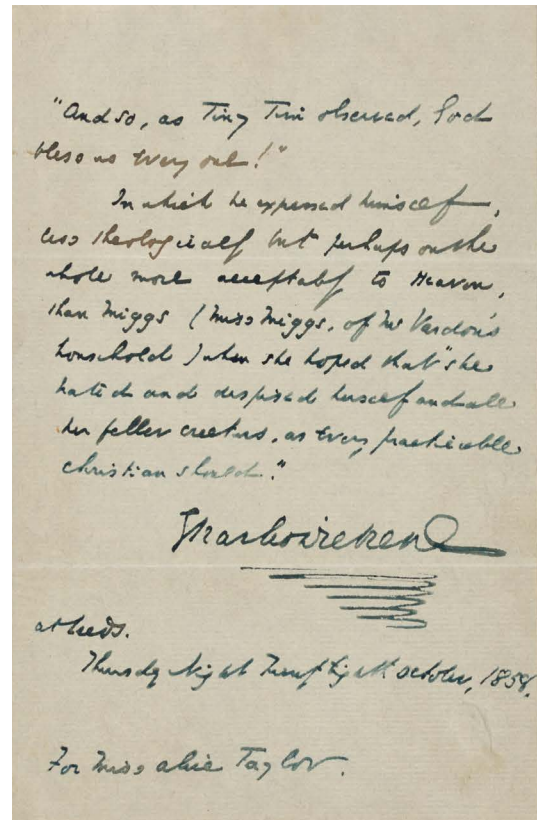 "And so, as Tiny Tim observed, God
bless us Every one!"
In which he expressed himself,
less theologically but perhaps on the
whole more acceptably to Heaven,
than Miggs (Miss Miggs, of Mr Vardon's
household) when she hoped that "she
hated and despised herself and all
her feller creeturs, as every practicable
Christian should."
Charles Dickens
at Leeds.
Thursday Night Twenty Eighth October, 1858.
For Miss Alice Taylor.